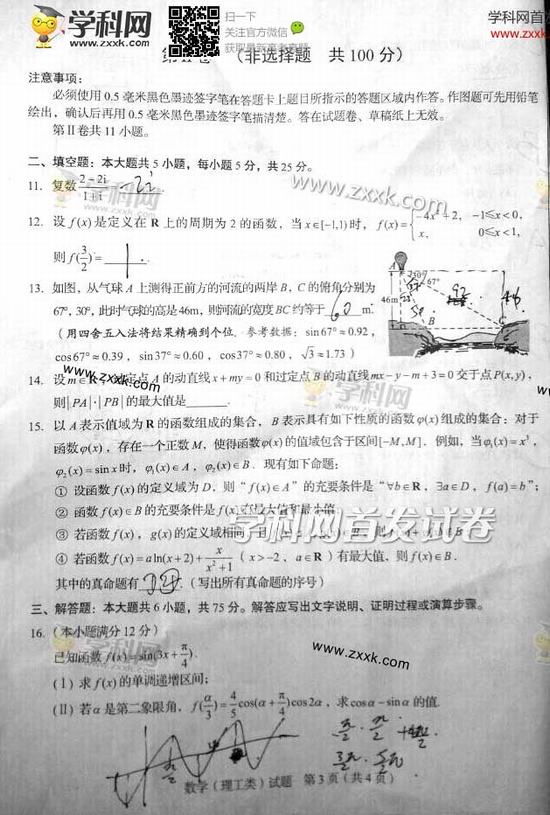 学科网
www.zxxk.com
扫一下
关注微信
获取最新高考
学科网首
www.zxxk.com
（非选择题 共 100 分）
注意事项：
必须使用 0.5 毫米黑色墨迹签字笔在答题卡上题目所指示的答题区域内作答。作图题可先用铅笔
绘出，确认后再用 0.5 毫米黑色墨迹签字笔描清楚。答在试题卷、草稿纸上无效。
第Ⅱ卷共 11 小题。
二、填空题：本大题共 5 小题，每小题 5 分，共 25 分。
11. 复数 (2-2i)/(1+i) -2i
www.zxxk.com
12. 设 f(x) 是定义在 R 上的周期为 2 的函数，当 x∈[-1,1) 时，f(x)={ -4x²+2, -1≤x<0, x, 0≤x<1,
则 f(3/2)= 1 .
13. 如图，从气球 A 上测得正前方的河流的两岸 B，C 的俯角分别为
67°，30°，此时气球的高是 46m，则河流的宽度 BC 约等于 60 m.
（用四舍五入法将结果精确到个位．参考数据：sin67°≈0.92，
cos67°≈0.39，sin37°≈0.60，cos37°≈0.80，√3≈1.73）
A
30°
67°
46m
92
46
B
C
14. 设 m∈R，过定点 A 的动直线 x+my=0 和过定点 B 的动直线 mx-y-m+3=0 交于点 P(x,y)，
则 |PA|·|PB| 的最大值是 .
www.zxxk.com
学科网
15. 以 A 表示值域为 R 的函数组成的集合，B 表示具有如下性质的函数 φ(x) 组成的集合：对于
函数 φ(x)，存在一个正数 M，使得函数 φ(x) 的值域包含于区间 [-M,M]．例如，当 φ₁(x)=x³，
φ₂(x)=sin x 时，φ₁(x)∈A，φ₂(x)∈B．现有如下命题：
① 设函数 f(x) 的定义域为 D，则“f(x)∈A”的充要条件是“∀b∈R，∃a∈D，f(a)=b”；
② 函数 f(x)∈B 的充要条件是 f(x) 有最大值和最小值
③ 若函数 f(x)，g(x) 的定义域相同，且
学科网首发试卷
④ 若函数 f(x)=aln(x+2)+x/(x²+1)（x>-2，a∈R）有最大值，则 f(x)∈B．
其中的真命题有 （写出所有真命题的序号）
三、解答题：本大题共 6 小题，共 75 分。解答应写出文字说明、证明过程或演算步骤。
16.（本小题满分 12 分）
www.zxxk.com
已知函数 f(x)=sin(3x+π/4)．
(Ⅰ) 求 f(x) 的单调递增区间；
(Ⅱ) 若 α 是第二象限角，f(α/3)=4/5 cos(α+π/4)cos2α，求 cosα-sinα 的值．
数学（理工类）试题 第 3 页（共 4 页）